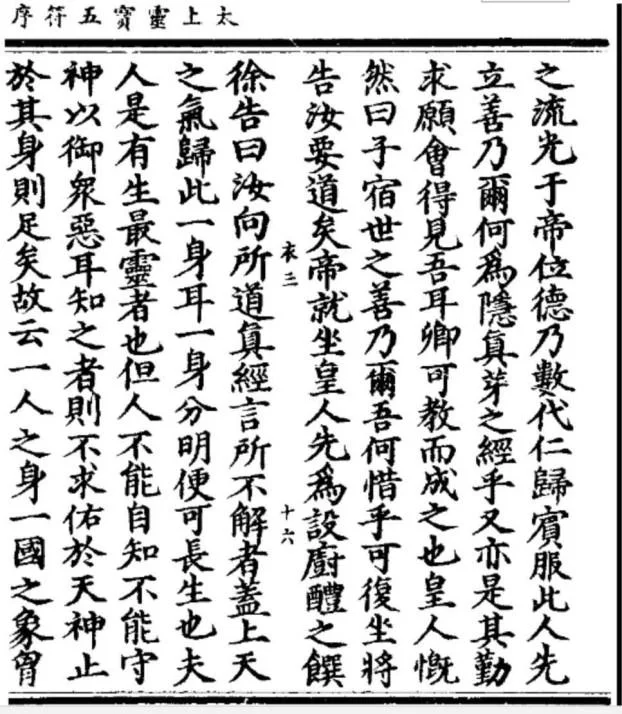 太上靈寶五符序
之流光于帝位德乃數代仁歸賓服此人先
立善乃爾何爲隱眞芽之經乎又亦是其勤
求願會得見吾耳卿可教而成之也皇人慨
然曰子宿世之善乃爾吾何惜乎可復坐將
告汝要道矣帝就坐皇人先爲設廚醴之饌
衣三 十六
徐告曰汝向所道眞經言所不解者蓋上天
之氣歸此一身耳一身分明便可長生也夫
人是有生最靈者也但人不能自知不能守
神以御衆惡耳知之者則不求佑於天神止
於其身則足矣故云一人之身一國之象胷